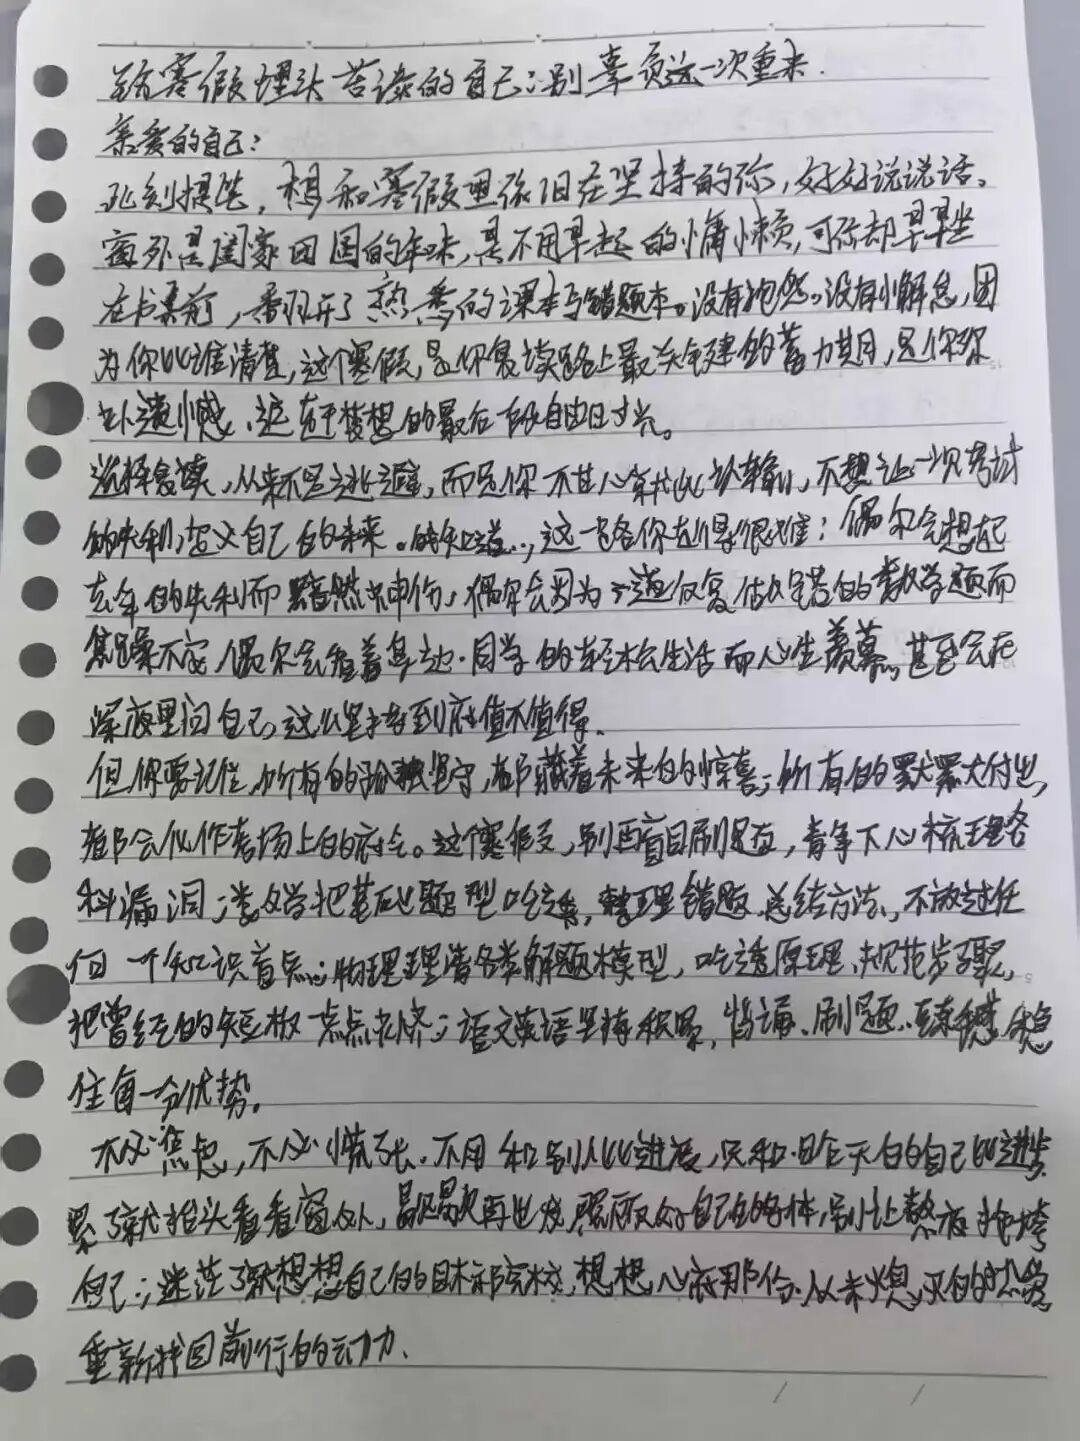 致寒假埋头苦读的自己:别辜负这一次重来.
亲爱的自己:
此刻提笔,想和寒假里依旧在坚持的你,好好说说话。
窗外是阖家团圆的年味,是不用早起的慵懒,可你却早早坐
在书桌前,翻开了熟悉的课本与错题本。没有抱怨。没有懈怠,因
为你比谁清楚,这个寒假,是你复读路上最关键的蓄力期,是你弥
补遗憾、追赶梦想的最后一段自由时光。
选择复读,从来不是逃避,而是你不甘心就此认输,不想让一次考试
的失利,定义自己的未来。我知道,这一路你走得很难:偶尔会想起
去年的失利而黯然神伤,偶尔会因为一道反复做错的数学题而
焦躁不安,偶尔会看着身边同学的轻松生活而心生羡慕,甚至会在
深夜里问自己,这么坚持到底值不值得.
但你要记住,所有的孤独坚守,都藏着未来的惊喜;所有的默默付出,
都会化作考场上的底气。这个寒假,别再盲目刷题,静下心梳理各
科漏洞;数学把基础题型吃透,整理错题、总结方法,不放过任
何一个知识盲点;物理理清各类解题模型,吃透原理、规范步骤,
把曾经的短板一点点补齐;语文英语坚持积累,背诵、刷题、稳
住每一分优势.
不必焦虑,不必慌张.不用和别人比进度,只和昨天的自己比进步.
累了就抬头看看窗外,歇歇再出发,照顾好自己的身体,别让熬夜拖垮
自己;迷茫了就想想自己的目标院校,想想心底那份从未熄灭的热爱
重新找回前行的动力.